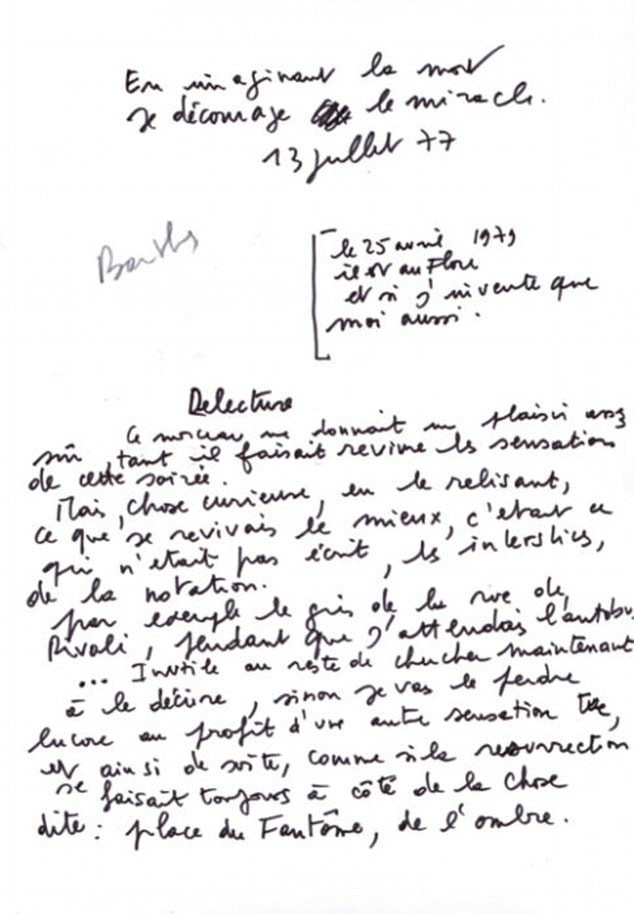 En imaginant la mort
je décourage le miracle.
13 juillet 77
Barthes
le 25 avril 1979
il est au Flore
et si j'invente que
moi aussi.
Relecture
Ce morceau me donnait un plaisir assez
sûr, tant il faisait revivre les sensations
de cette soirée.
Mais, chose curieuse, en le relisant,
ce que je revivais le mieux, c'était ce
qui n'était pas écrit, les interstices,
de la notation.
par exemple le gris de la rue de
Rivoli, pendant que j'attendais l'autobu
... Inutile au reste de chercher maintenant
à le décrire, sinon je vas le perdre
encore au profit d'une autre sensation
et ainsi de suite, comme si la resurrection
se faisait toujours à côté de la chose
dite : place du Fantôme, de l'ombre.